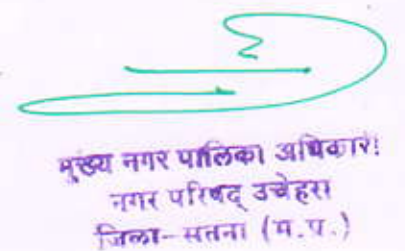 मुख्य नगर पालिका अधिकारी
नगर परिषद् उचेहरा
जिला-सतना (म.प.)